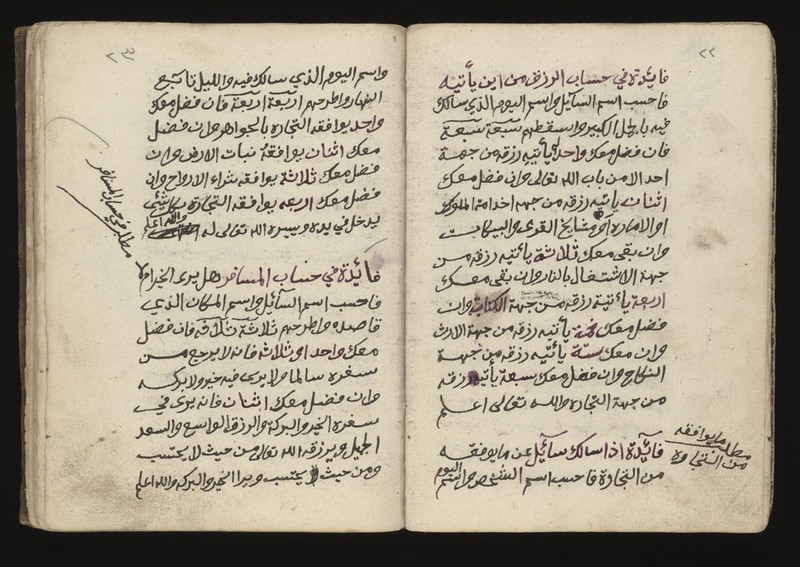 ٢٢
فايدة في حساب الرزق من اين يأتيه
فاحسب اسم السآيل واسم اليوم الذي سالك
فيه بالجمل الكبير واسقطهم سبعة سبعة
فان فضل معك واحد يأتيه رزقه من جهة
احد الامن باب الله تعالى وان فضل معك
اثنان يأتيه رزقه من جهه اخدامة الملوك
او الاماره او مشايخ القرى والبيكات
وان بقى معك ثلاثة يأتيه رزقه من
جهة الاشتغال بالنار وان بقى معك
اربعة يأتيه رزقه من جهة الكتاب وان
فضل معك خمسة يأتيه رزقه من جهة الارث
وان معك ستة يأتيه رزقه من جهة
النكاح وان فضل معك سبعة يأتيه رزقه
من جهة التجاره والله تعالى اعلم
فآيدة اذا سالك سآيل عن ما يوفقه
من التجارة فاحسب اسم الشخص واسم اليوم
مطلب ما يوافقه
من التجارة
٢٣
واسم اليوم الذي سالك فيه والليل تابع
النهار واطرحهم اربعة اربعة فان فضل معك
واحد يوافقه التجاره بالجواهر وان فضل
معك اثنان يوافقه نبات الارض وان
فضل معك ثلاثة يوافقه شراء الارواح وان
فضل معك اربعه يوافقه التجارة بكل شئ
يدخل في يده وييسره الله تعالى له والله اعلم
فآئدة في حساب المسافر هل يرى الخير ام لا
فاحسب اسم السآئل واسم المكان الذي
قاصده واطرحهم ثلاثة ثلاثة فان فضل
معك واحد او ثلاثة فانه لا يرجع من
سفره سالما ولا يرى فيه خير ولا بركه
وان فضل معك اثنان فانه يرى في
سفره الخير والبركة والرزق الواسع والسعد
الجميل ويرزقه الله تعالى من حيث لا يحتسب
ومن حيث يحتسب ويرا الخير والبركه والله اعلم
مطلب في حساب المسافر